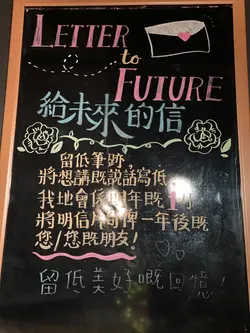 LETTER
to
FUTURE
給未來的信
留低筆跡，
將想講既說話寫低，
我地會係明年既1月
將明信片寄俾一年後既
您/您既朋友！
留低美好嘅回憶！